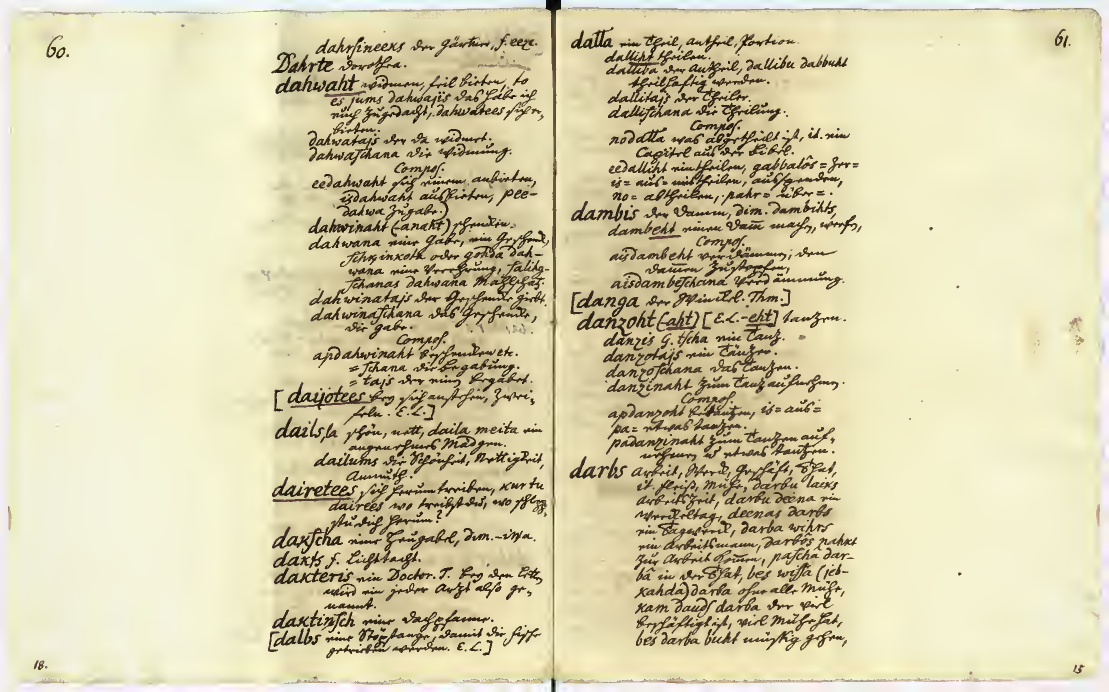 60.
dahrsineeks der Gärtner, f. eeze.
Dahrte Dorothea.
dahwaht widmen, feil bieten, to
es jums dahwajis das habe ich
euch zugedacht, dahwatees sich er,
bieten.
dahwatajs der da widmet.
dahwaschana die Widmung.
Compos.
eedahwaht sich einem anbieten,
isdahwaht ausbieten, pee-
dahwa Zugabe.
dahwinaht (-anaht) schenken.
dahwana eine Gabe, ein Geschenk,
schkinkota oder goh̄da dah-
wana eine Verehrung, salihg-
schanas dahwana Mahlschatz.
dahwinatajs der Geschenke giebt.
dahwinaschana das Geschenke,
die gabe.
Compos.
apdahwinaht beschenken etc.
= schana die begabung.
= tajs der einen begabet.
[daijotees bey sich anstehen, Zwei,
feln. E. L.]
dails, la schön, nett, daila meita ein
angenehmes Mädgen.
dailums die Schönheit, Nettigkeit,
Anmuth.
dairetees sich herum treiben, kur tu
dairees wo treibst du, wo schlep,
stu dich herum?
dakscha eine Heugabel, dim. -ina.
dakts f. Lichttacht.
dakteris ein Doctor. T. bey den Letten
wird ein jeder Arzt also ge-
nannt.
daktinsch eine Dachpfanne.
[dalbs eine Störstange, damit die Fische
getrieben werden. E. L.]
18.
61.
datta ein Theil, antheil, Portion.
dalliht theilen.
dalliba der Antheil, dallibu dabbuht
theilhaftig werden.
dallitajs der Theiler.
dallischana die Theilung.
Compos.
nodatta was abgetheilt ist, it. ein
Capitel aus der Bibel.
eedalliht eintheilen, gabbalôs = zer=
is= aus= mittheilen, ausspenden,
no= abtheilen, pahr= über=.
dambis der Damm, dim. dambihts,
dambeht einen Dam̄ machen, werfen,
Compos.
aisdambeht verdämmen, den
damm zustopfen,
aisdambeschana Verdämmung.
[danga der Winkel. Thm.]
danzoht (-aht) [E. L. -eht] tanzen.
danzis G. tscha ein Tanz.
danzotajs ein Tänzer.
danzoschana das Tanzen.
danzinaht zum Tanz aufnehmen.
Compos.
apdanzoht betanzen, is= aus=
pa= etwas tanzen.
padanzinaht zum Tanzen auf,
nehmen, it. etwas tanzen.
darbs Arbeit, Werck, Geschäft, That,
it. fleiß, Mühe, darbu laiks
arbeitszeit, darbu deena ein
Werckeltag, deenas darbs
ein Tagewerck, darba wihrs
ein Arbeitsmann, darbôs nahkt
zur Arbeit kom̄en, paschâ dar-
bâ in der That, bes wissa (jeb-
kahda) darba ohne alle Mühe,
kam daudf darba der viel
beschäftigt ist, viel Mühe hat,
bes darba buht müßig gehen,
15